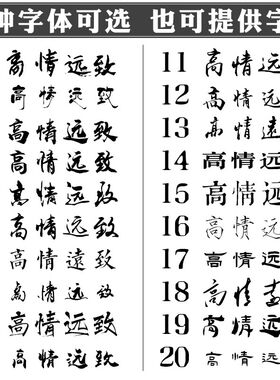 种字体可选 也可提供字
高情远致
高情远致
高情远致
高情远致
高情远致
高情远致
高情遠致
高情远致
高情远致
高情远致
11 高情远
12 高情远
13 高情遠
14 高情远
15 高情远
16 高情远
17 高情远
18 高情
19 高情远
20 高情远